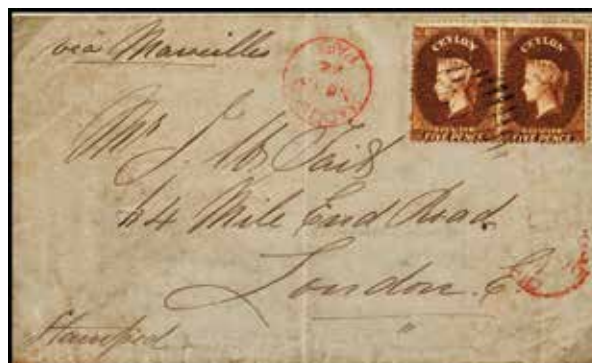 via Marseilles
CEYLON CEYLON
FIVE PENCE FIVE PENCE
Mr J. W. Tait
44 Mile End Road
London. E.
Stamped